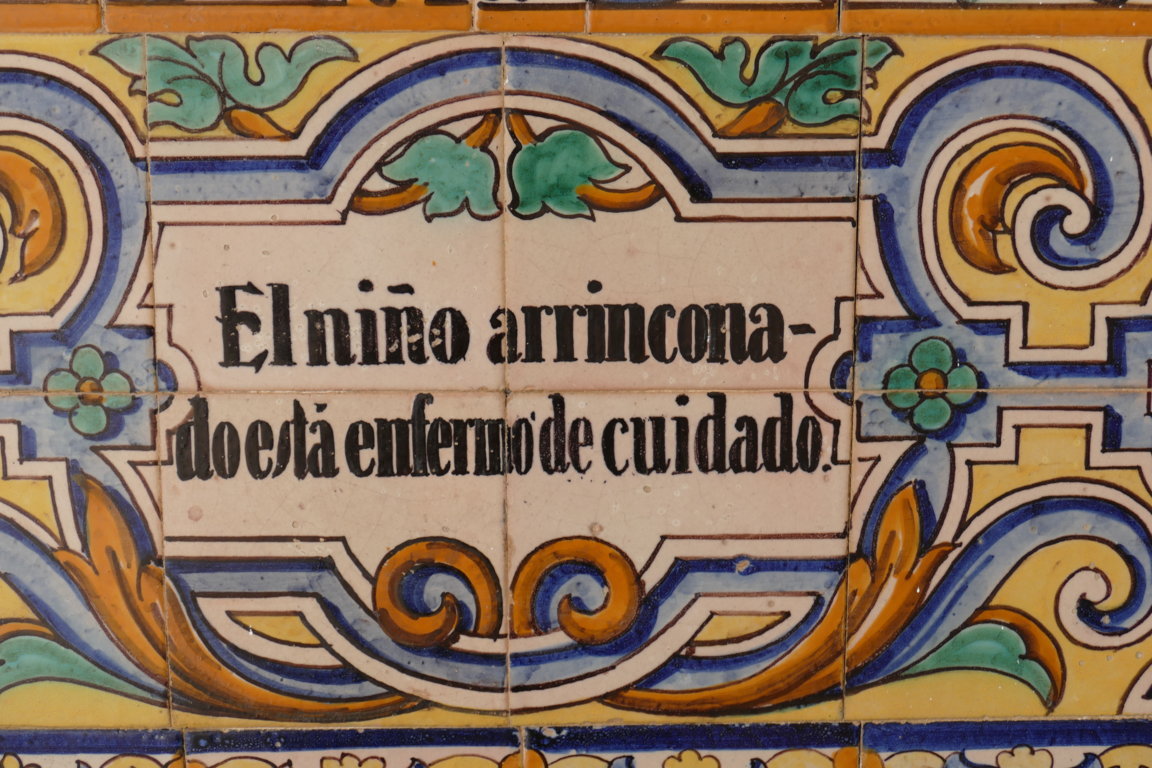 El niño arrincona-
do está enfermo de cuidado.